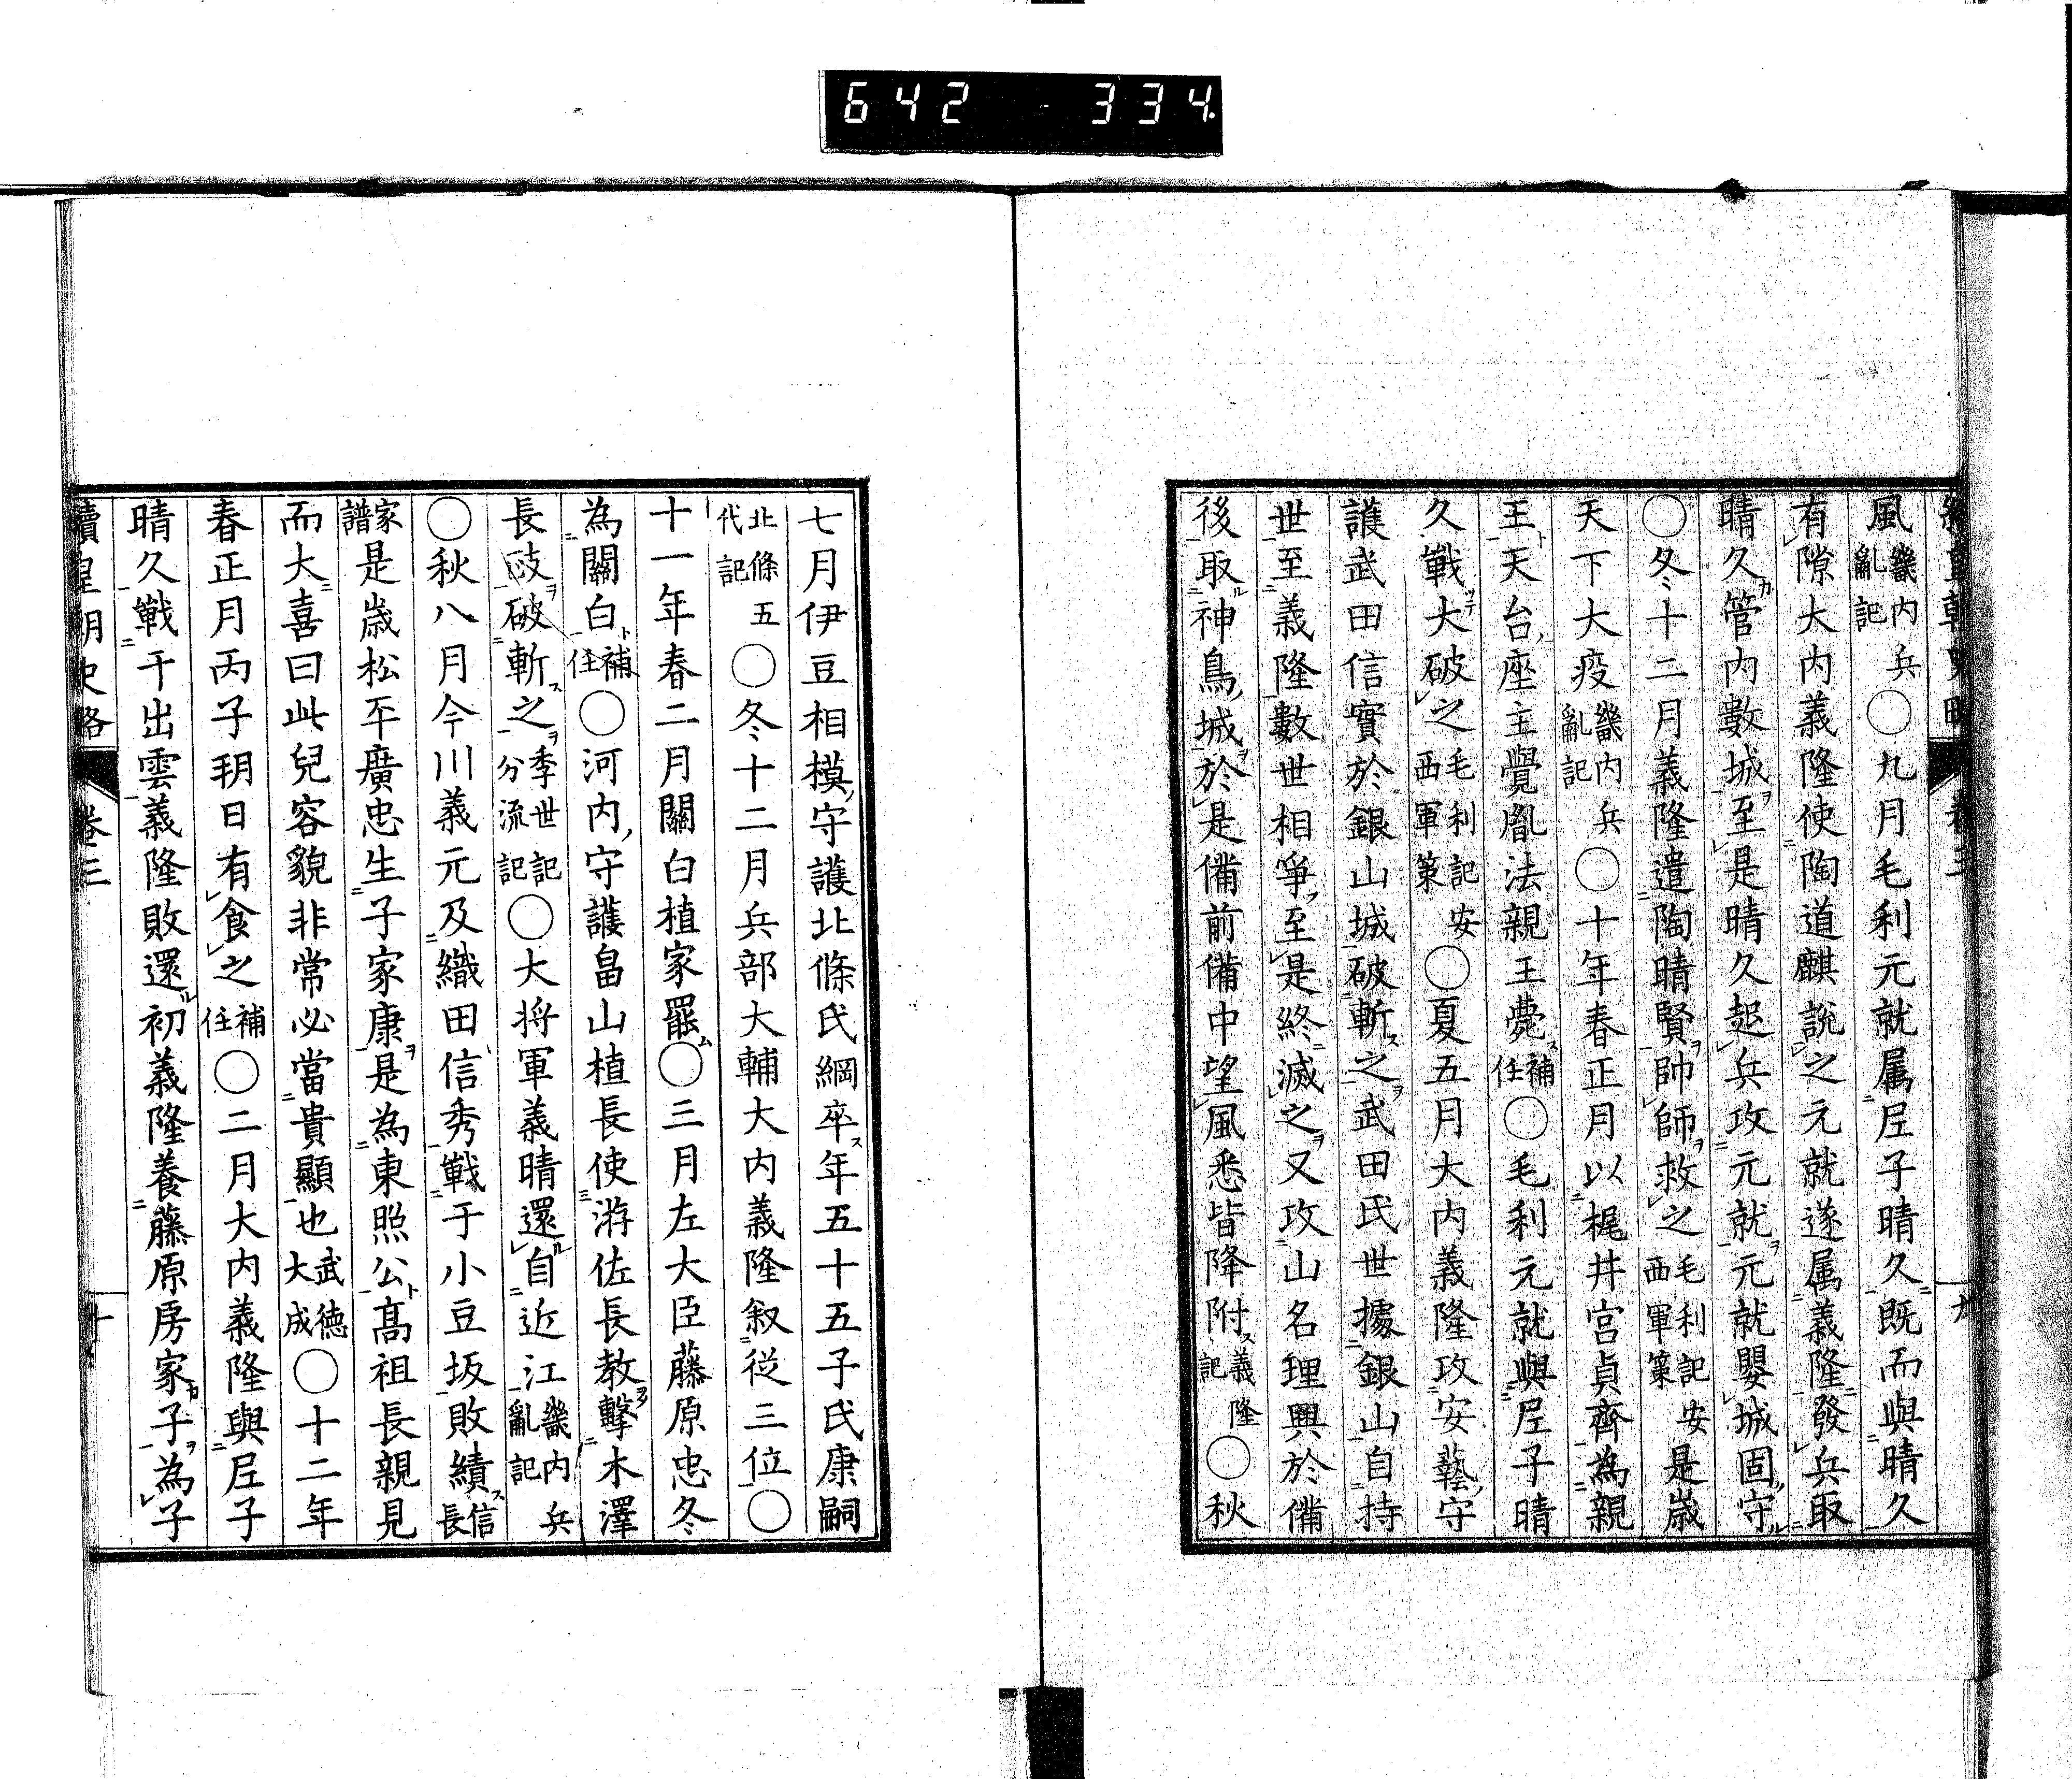 642 334.
續皇朝史略 卷三 九
風畿内兵亂記〇九月毛利元就属尼子晴久既而與晴久
有隙大内義隆使陶道麒説之元就遂属義隆發兵取
晴久管内數城至是晴久起兵攻元就元就嬰城固守
〇冬十二月義隆遣陶晴賢帥師救之毛利記安西軍策是歳
天下大疫畿内兵亂記〇十年春正月以梶井宮貞齊為親
王天台座主覺胤法親王薨補任〇毛利元就與尼子晴
久戰大破之毛利記安西軍策〇夏五月大内義隆攻安藝守
護武田信實於銀山城破斬之武田氏世據銀山自持
世至義隆數世相爭至是終滅之又攻山名理興於備
後取神鳥城於是備前備中望風悉皆降附義隆記〇秋
七月伊豆相模守護北條氏綱卒年五十五子氏康嗣
北條五代記〇冬十二月兵部大輔大内義隆叙従三位〇
十一年春二月關白植家罷〇三月左大臣藤原忠冬
為關白補任〇河内守護畠山植長使游佐長教擊木澤
長政破斬之季世記分流記〇大将軍義晴還自近江畿内兵亂記
〇秋八月今川義元及織田信秀戰于小豆坂敗績信長
家譜是歳松平廣忠生子家康是為東照公髙祖長親見
而大喜曰此兒容貌非常必當貴顯也武德大成〇十二年
春正月丙子朔日有食之補任〇二月大内義隆與尼子
晴久戰于出雲義隆敗還初義隆養藤原房家子為子
續皇朝史略 卷三 十